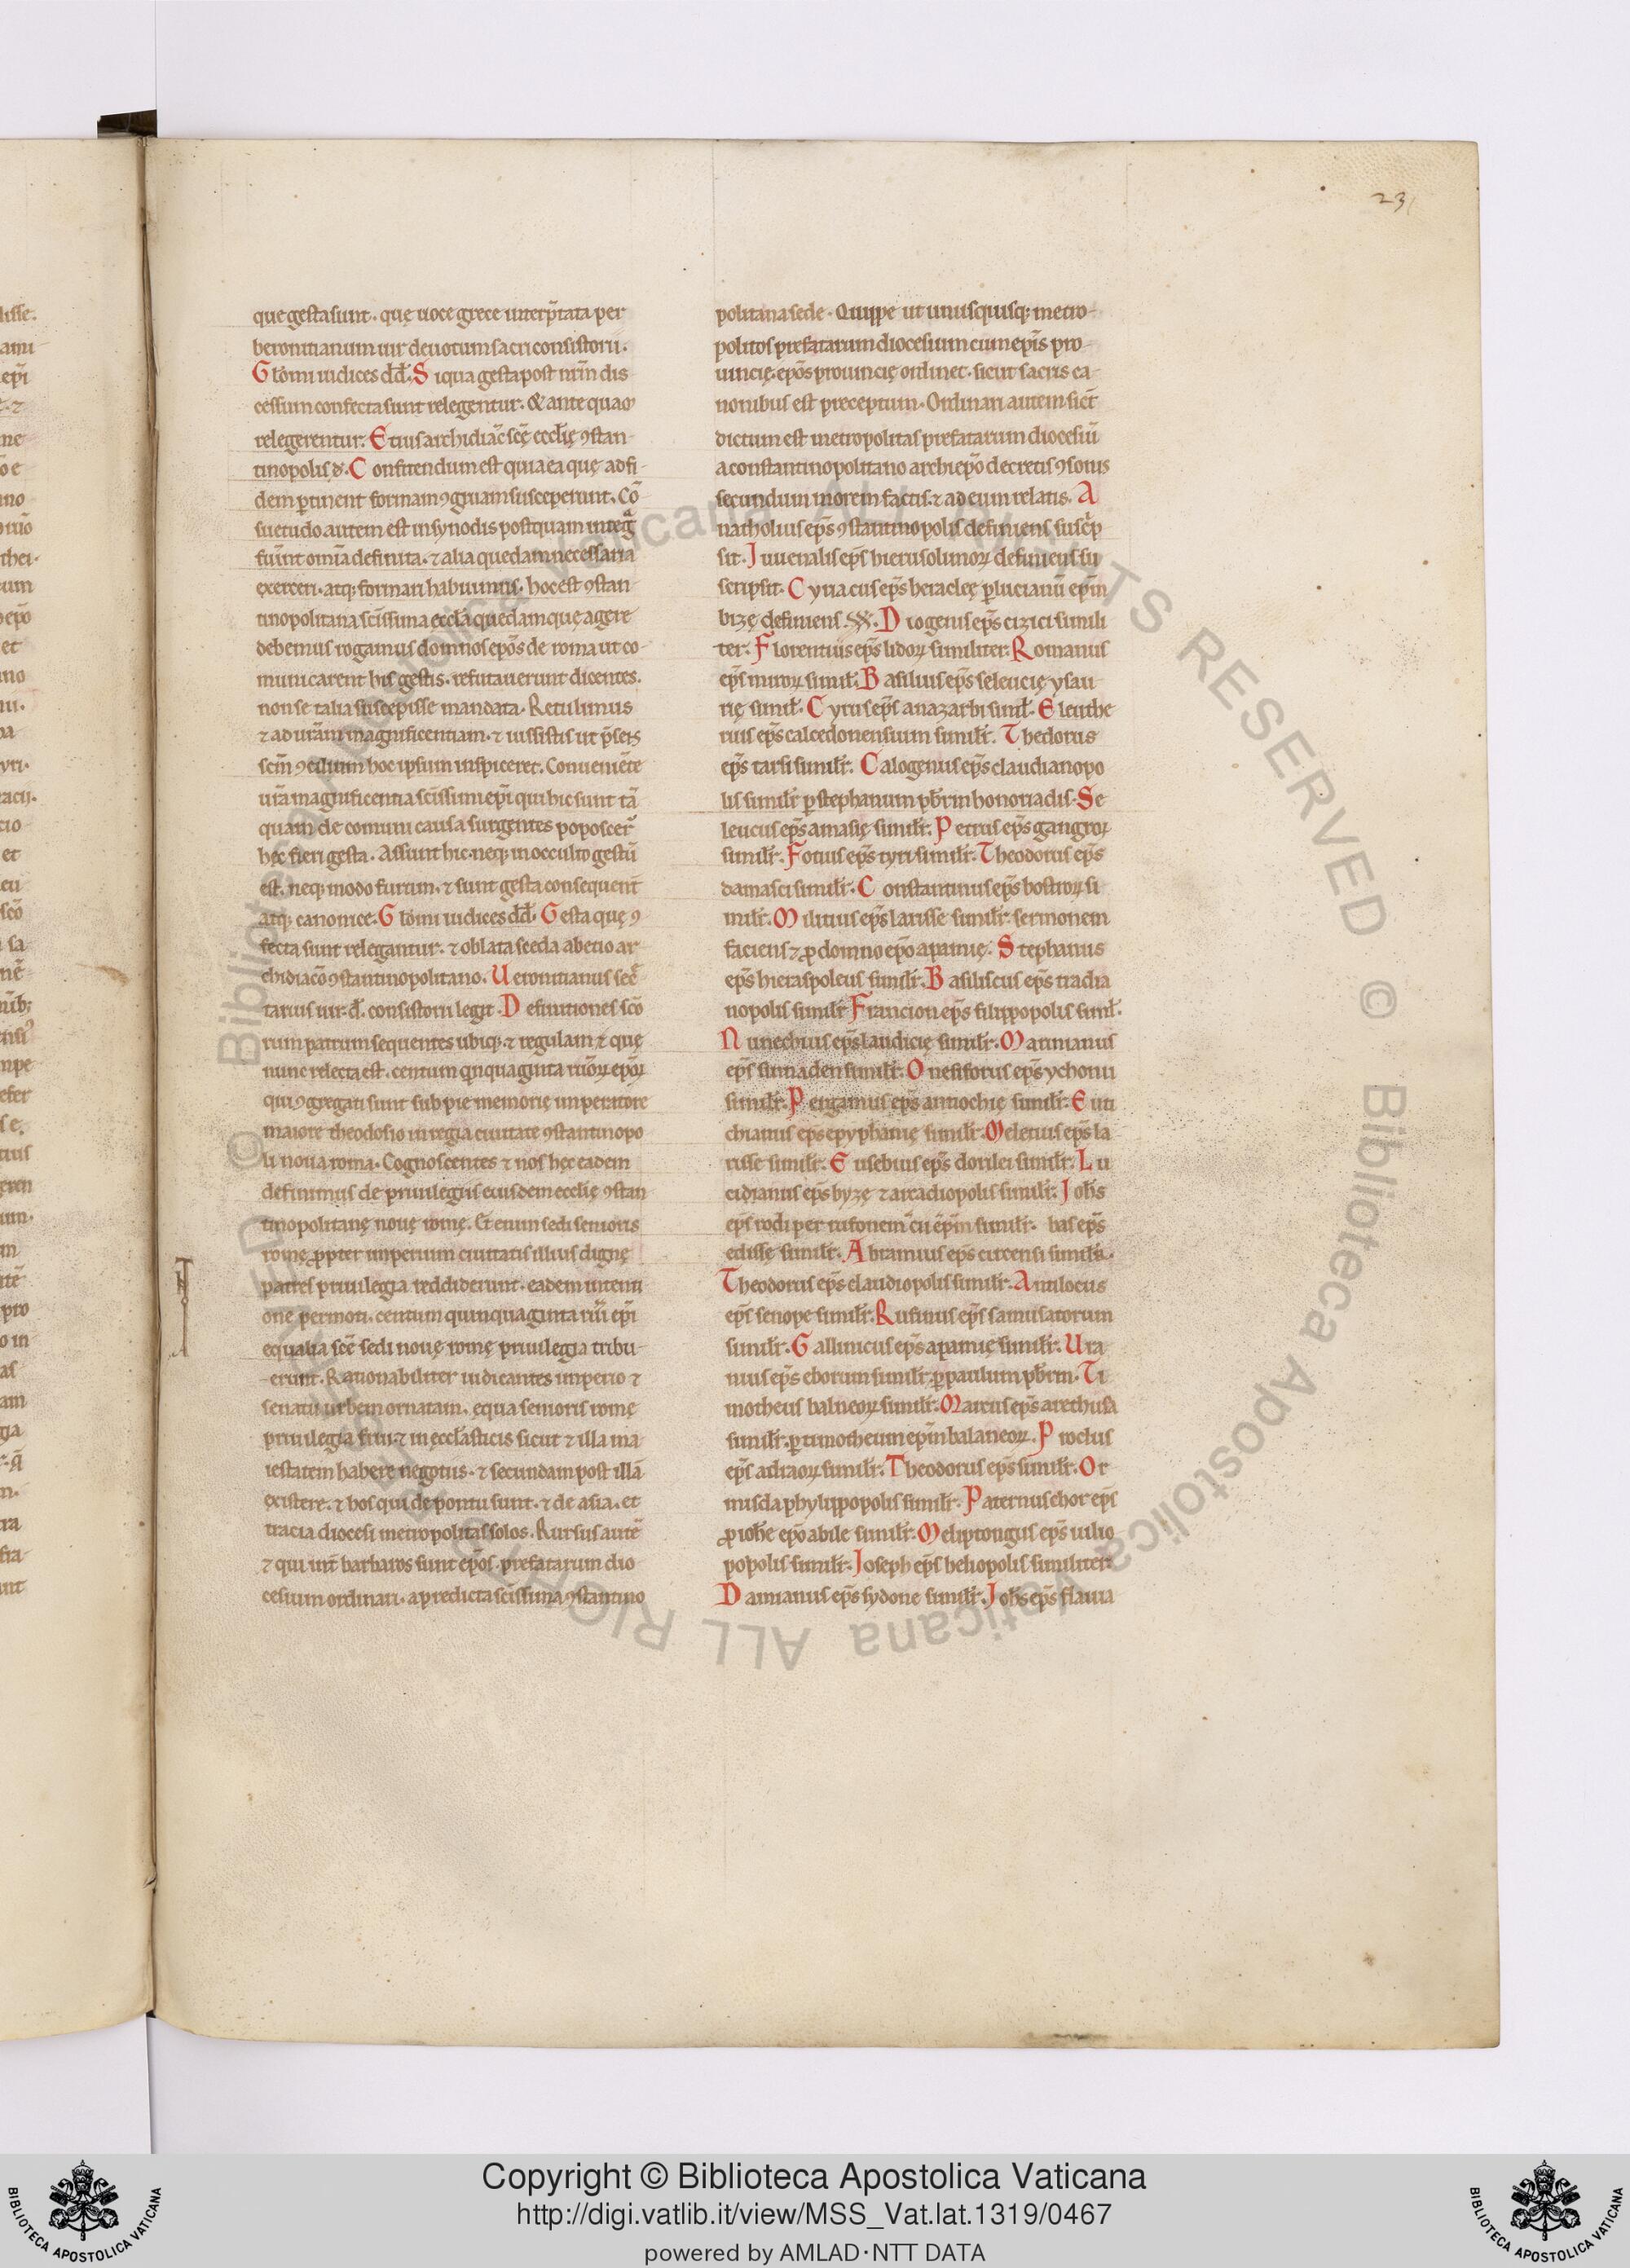 231
que gesta sunt. quę uoce grece interp̃tata per
beronitianum uir deuotum sacri consistorii.
Glo͂mi iudices dd̃. Si qua gesta post nr̃m dis
cessum confecta sunt relegentur. & ante quaꝫ
relegerentur. Etius archidiac̃ scę̃ ecclię̃ ꝯstan
tinopolis đ. Confitendum est quia ea quę ad fi
dem ꝑtinent formam ꝯgruam susceperunt. Cõ
suetudo autem est in synodis postquam integ̃
fuĩnt om̃ia definita. ⁊ alia quedam necessaria
exerceri. atq; formari habuimus. hoc est ꝯstan
tinopolitana scĩssima eccl̃a quedamquę agere
debemus rogamus domnos ep̃os de roma ut co
municarent his gestis. refutauerunt dicentes.
non se talia suscepisse mandata. Retulimus
⁊ ad ur̃am magnificentiam. ⁊ iussistis ut p̃sens
scm̃ ꝯcilium hoc ipsum inspiceret. Conueniẽte
ur̃a magnificentia scĩssimi ep̃i qui hic sunt tã
quam de comuni causa surgentes poposcer̃
hęc fieri gesta. Assunt hic. neq; in occulto gestũ
est. neq; modo furum. ⁊ sunt gesta consequent̃
atq; canonice. Glo͂mi iudices dd̃. Gesta quę ꝯ
fecta sunt relegantur. ⁊ oblata sceda ab etio ar
chidiacõ ꝯstantinopolitano. Ueronitianus sec̃
tarius uir. d̃. consistorii legit. Definitiones scõ
rum patrum sequentes ubiq;. ⁊ regulam ⁊ quę
nunc relecta est. centum qnquaginta riũoꝝ ep̃oꝝ
qui ꝯgregati sunt sub pie memorię imperatore
maiore theodosio in regia ciuitate ꝯstantinopo
li noua roma. Cognoscentes ⁊ nos hęc eadem
definimus de priuilegiis eiusdem ecclię ꝯstan
tinopolitanę nouę romę. Et enim sedi senioris
romę ꝓpter imperium ciuitatis illius digne
patres priuilegia reddiderunt. eadem intenti
one permoti. centum quinquaginta riũi ep̃i
equalia scẽ sedi nouę romę priuilegia tribu
erunt. Rationabiliter iudicantes imperio ⁊
senatu urbem ornatam. equa senioris romę
priuilegia frui. ⁊ in eccl̃asticis sicut ⁊ illa ma
iestatem habere negotiis. ⁊ secundam post illã
existere. ⁊ hos qui de pontu sunt. ⁊ de asia. et
tracia diocesi metropolitas solos. Rursus autẽ
⁊ qui int̃ barbaros sunt ep̃os. prefatarum dio
cesium ordinari. a predicta scĩssima ꝯstantino
politana sede. Quippe ut unusquisq; metro
politos prefatarum diocesium cum ep̃is pro
uincię. ep̃os prouincię ordinet. sicut sacris ca
nonibus est preceptum. Ordinari autem sict̃
dictum est metropolitas prefatarum diocesiũ
a constantinopolitano archiep̃o decretis ꝯsonis
secundum morem factis. ⁊ ad eum relatis. A
natholius ep̃s ꝯstantinopolis definiens suscrip̃
sit. Iuuenalis ep̃s hierusolimoꝝ definiens su
scripsit. Cyriacus ep̃s heraclee ꝑ lucianũ ep̃m
bizę definiens. SS. Diogenis ep̃s cizici simili
ter. Florentius ep̃s lidoꝝ similiter. Romanus
ep̃s miroꝝ simil̃. Basilius ep̃s seleucię ysau
rię simil̃. Cyrus ep̃s anazarbi simil̃. Eleuthe
rius ep̃s calcedonensium simil̃r. Thedorus
ep̃s tarsi simil̃r. Calogenus ep̃s claudianopo
lis simil̃r ꝑ stephanum pb̃rm honoriadis. Se
leucus ep̃s amasię simil̃r. Petrus ep̃s gangroꝝ
simil̃r. Fotius ep̃s tyri simil̃r. Theodorus ep̃s
damasci simil̃r. Constantinus ep̃s bostroꝝ si
mil̃r. Militius ep̃s larisse simil̃r. sermonem
faciens ⁊ ꝓ domno ep̃o apamię. Stephanus
ep̃s hieraspoleus simil̃r. Basiliscus ep̃s tradia
nopolis simil̃r Francion ep̃s filippopolis simil̃.
Nunechius ep̃s laudicię simil̃r. Marinianus
ep̃s sinnaden simil̃r. Onesiforus ep̃s ychonii
simil̃r. Pergamus ep̃s antiochię simil̃r. Euti
chianus ep̃s epyphanię simil̃r. Meletius ep̃s la
risse simil̃r. Eusebius ep̃s dorilei simil̃r. Lu
cidianus ep̃s byzę ⁊ arcadiopolis simil̃r. Ioh̃s
ep̃s rodi per rufonem cũ ep̃m simil̃r. bas ep̃s
edisse simil̃r. Abramius ep̃s circensi simil̃r.
Theodorus ep̃s claudiopolis simil̃r. Antilocus
ep̃s senope simil̃r. Rufinus ep̃s samusatorum
simil̃r. Gallinicus ep̃s apamię simil̃r. Ura
nius ep̃s eborum simil̃r. ꝑ paulum pb̃rm. Ti
motheus balneoꝝ simil̃r. Marcus ep̃s arethusa
simil̃r. ꝑ timotheum ep̃m balaneoꝝ. Proclus
ep̃s adraoꝝ simil̃r. Theodorus ep̃s simil̃r. Or
misda phylippopolis simil̃r. Paternus chor ep̃s
ꝓ ioh̃e ep̃o abile simil̃r. Meliptongus ep̃s iulio
popolis simil̃r. Ioseph ep̃s heliopolis similiter.
Damianus ep̃s sydone simil̃r. Ioh̃s ep̃s flauia
Copyright © Biblioteca Apostolica Vaticana
http://digi.vatlib.it/view/MSS_Vat.lat.1319/0467
powered by AMLAD·NTT DATA
BIBLIOTECA APOSTOLICA VATICANA
BIBLIOTECA APOSTOLICA VATICANA
© Biblioteca Apostolica Vaticana ALL RIGHTS RESERVED © Biblioteca Apostolica Vaticana ALL RIGHTS RESERVED